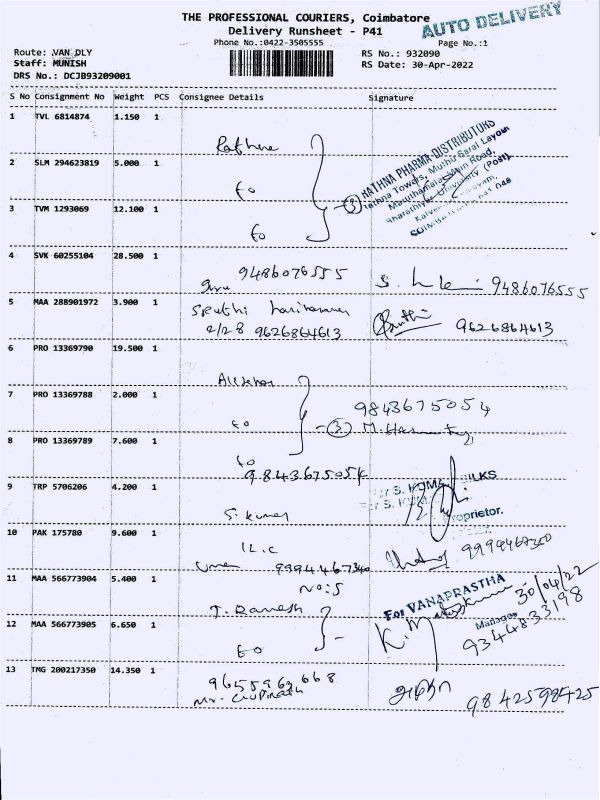 THE PROFESSIONAL COURIERS, Coimbatore
AUTO DELIVERY
Delivery Runsheet - P41
Phone No.:0422-3505555
Page No.:1
Route: VAN DLY
RS No.: 932090
Staff: MUNISH
RS Date: 30-Apr-2022
DRS No.: DCJB93209001
S No Consignment No Weight PCS Consignee Details Signature
1 TVL 6814874 1.150 1
Rathna
RATHNA PHARMA DISTRIBUTORS
Rathna Towers, Muthu Garal Layout
Maruthamalai Main Road,
Bharathiyar University (Post),
2 SLM 294623819 5.000 1
to
3 TVM 1293069 12.100 1
to
3
4 SVK 60255104 28.500 1
9486076555
9486076555
5 MAA 288901972 3.900 1
Sruthi
2/28 9626864613
9626864613
6 PRO 13369790 19.500 1
7 PRO 13369788 2.000 1
to
9843675054
3
8 PRO 13369789 7.600 1
to
9843675054
9 TRP 5706206 4.200 1
S. Kumar
For S. KUMAR SILKS
Proprietor.
10 PAK 175780 9.600 1
9994467340
11 MAA 566773904 5.400 1
No: 5
T. Ramesh
For VANAPRASTHA
30/04/22
Manager
9344833198
12 MAA 566773905 6.650 1
to
13 TMG 200217350 14.350 1
9655963668
Mr. Gopinath
9842598425